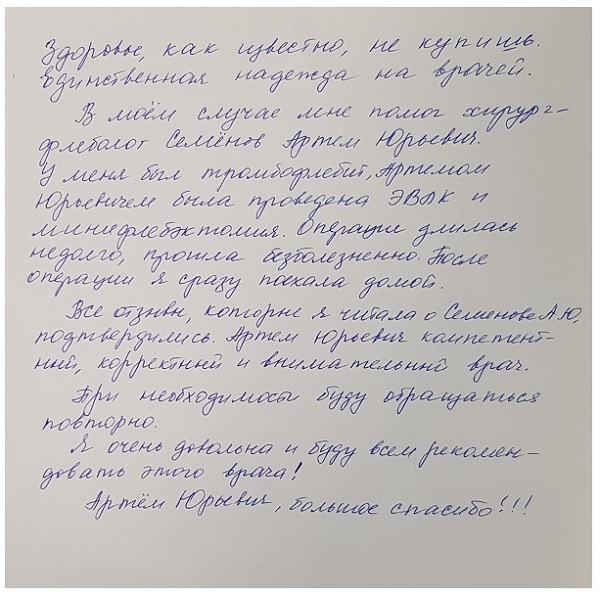 Здоровье, как известно, не купишь.
Единственная надежда на врачей.
В моём случае мне помог хирург-
флеболог Семёнов Артем Юрьевич.
У меня был тромбофлебит, Артемом
Юрьевичем была проведена ЭВЛК и
минифлебэктомия. Операция длилась
недолго, прошла безболезненно. После
операции я сразу поехала домой.
Все отзывы, которые я читала о Семенове А.Ю,
подтвердились. Артем Юрьевич компетент-
ный, корректный и внимательный врач.
При необходимости буду обращаться
повторно.
Я очень довольна и буду всем рекомен-
довать этого врача!
Артём Юрьевич, большое спасибо!!!